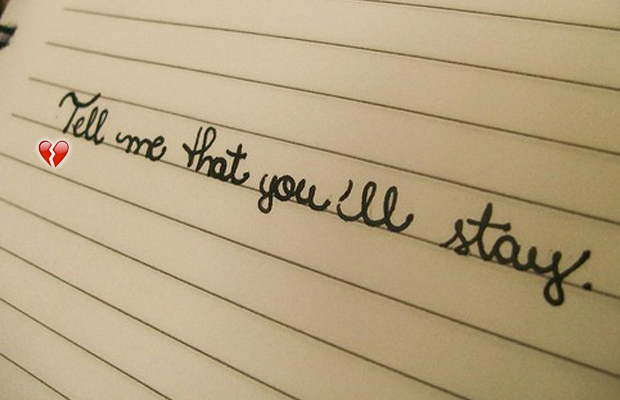 Tell me that you'll stay.